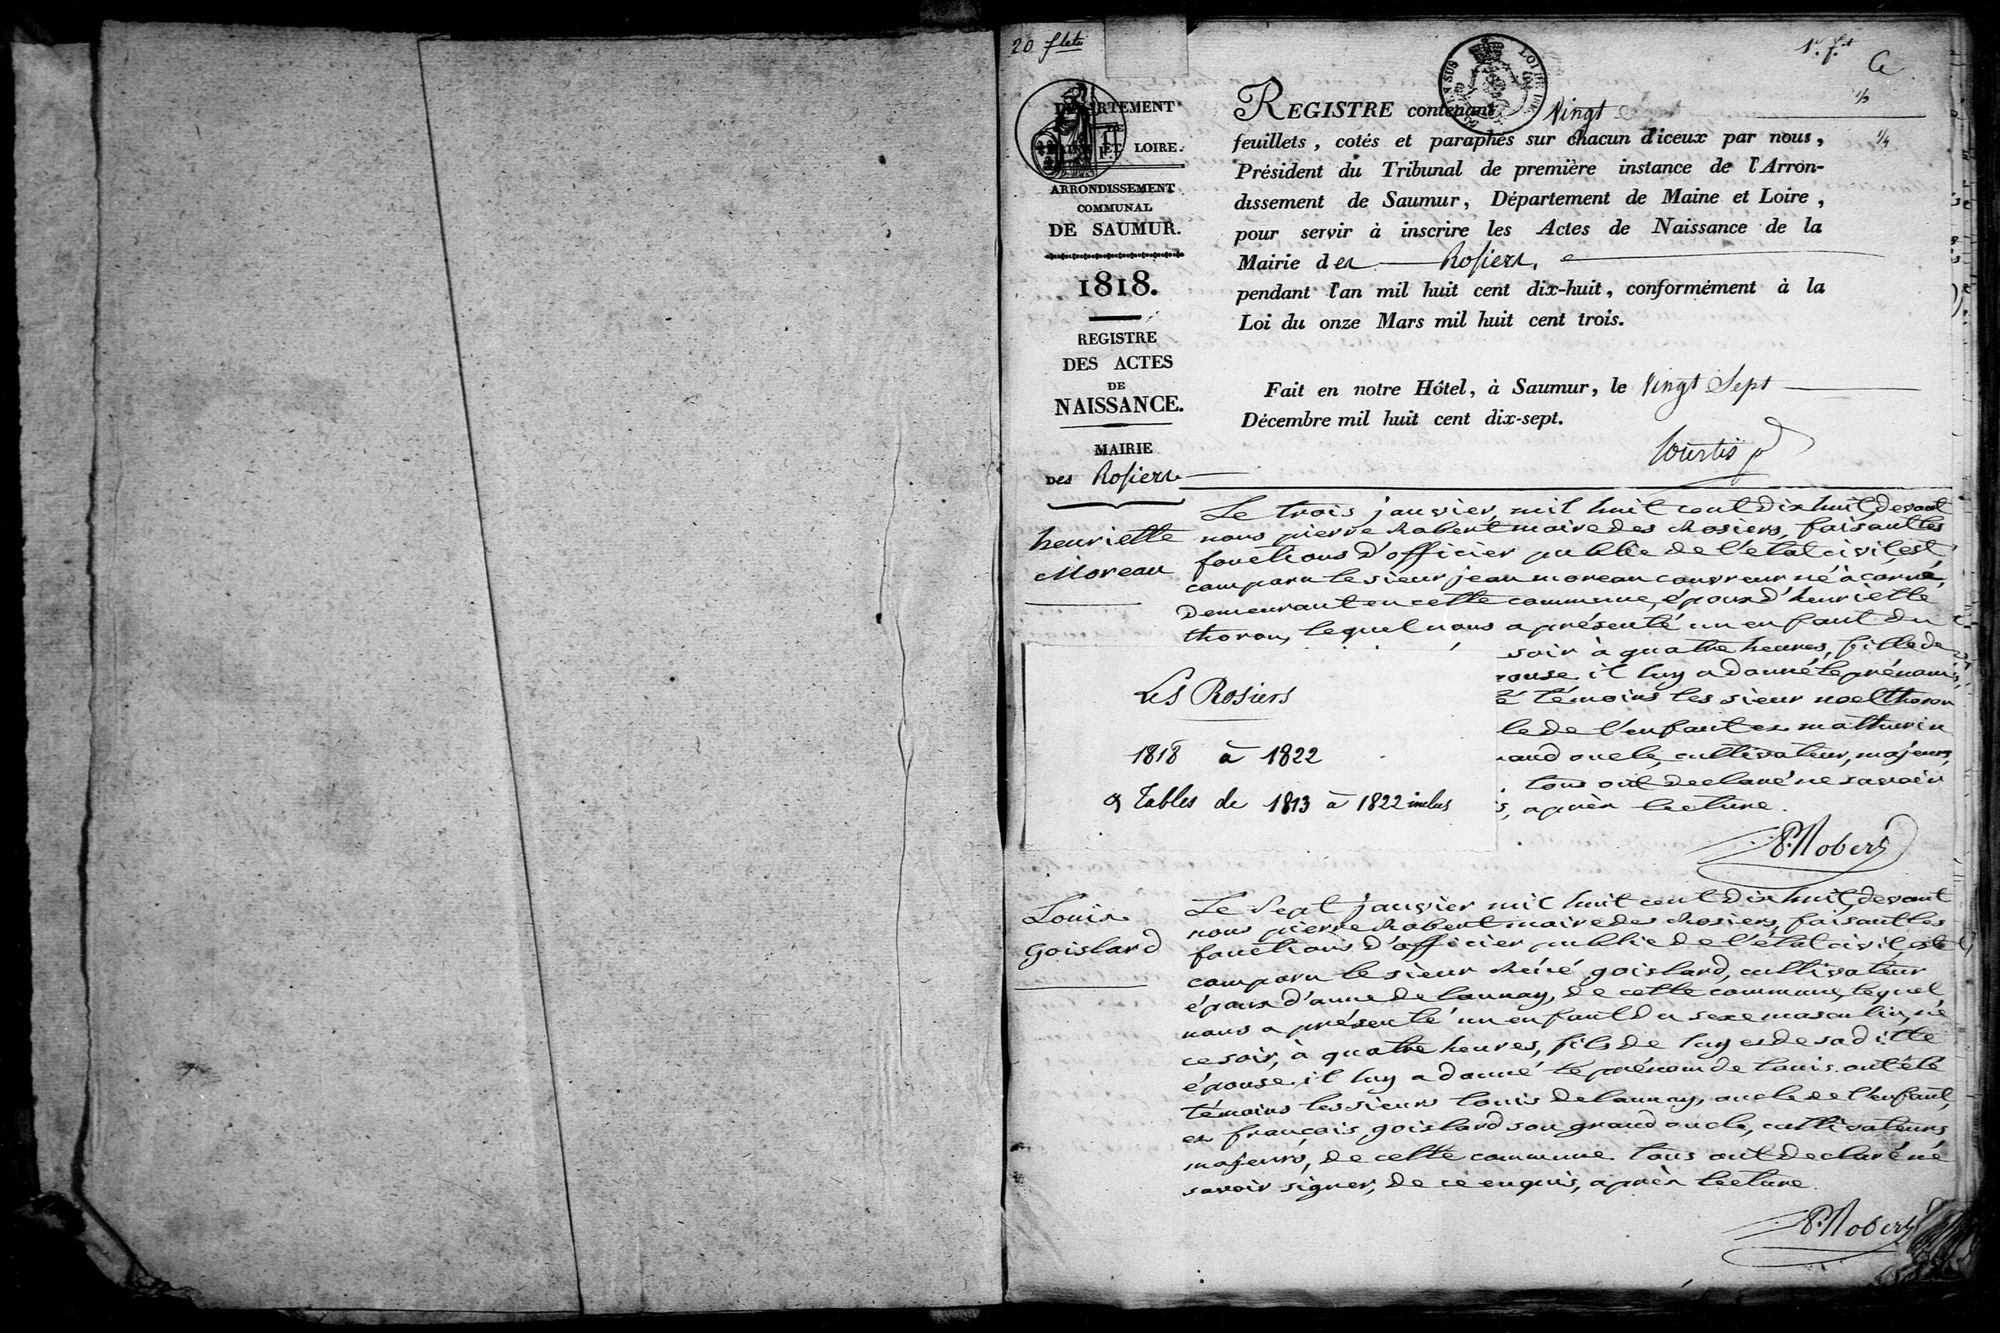 20 f.lets
1er f.t
DÉPARTEMENT
DE
MAINE ET LOIRE.
ARRONDISSEMENT
COMMUNAL
DE SAUMUR.
1818.
REGISTRE
DES ACTES
DE
NAISSANCE.
MAIRIE
DES Rosiers
REGISTRE contenant Vingt
feuillets, cotés et paraphés sur chacun d'iceux par nous,
Président du Tribunal de première instance de l'Arron-
dissement de Saumur, Département de Maine et Loire,
pour servir à inscrire les Actes de Naissance de la
Mairie des Rosiers.
pendant l'an mil huit cent dix-huit, conformément à la
Loi du onze Mars mil huit cent trois.
Fait en notre Hôtel, à Saumur, le Vingt Sept
Décembre mil huit cent dix-sept.
henriette
Moreau
Le trois janvier, mil huit cent dix huit, devant
nous pierre Robert maire des Rosiers, faisant les
fonctions d'officier public de l'état civil, est
comparu le sieur jean moreau couvreur né à corné,
demeurant en cette commune, époux d'henriette
thoron, lequel nous a présenté un enfant du
soir à quatre heures, fille de
pouse il luy a donné le prénom
é témoins les sieur noel thoron
le de l'enfant et mathurin
rand oncle, cultivateur, majeurs,
tous ont declaré ne savoir
s, après lecture.
Les Rosiers
1818 à 1822
& Tables de 1813 à 1822 inclus
P. Robert
Louis
Goislard
Le Sept janvier mil huit cent dix huit, devant
nous pierre Robert maire des Rosiers, faisant les
fonctions d'officier public de l'état civil, est
comparu le sieur Réné goislard, cultivateur
époux d'anne delaunay, de cette commune, lequel
nous a présenté un enfant du sexe masculin, né
ce soir, à quatre heures, fils de luy et de sa ditte
épouse. il luy a donné le prénom de Louis. ont été
témoins les sieurs Louis delaunay, oncle de l'enfant,
et françois goislard son grand oncle, cultivateurs
majeurs, de cette commune tous ont declaré ne
savoir signer, de ce enquis, après lecture
P. Robert